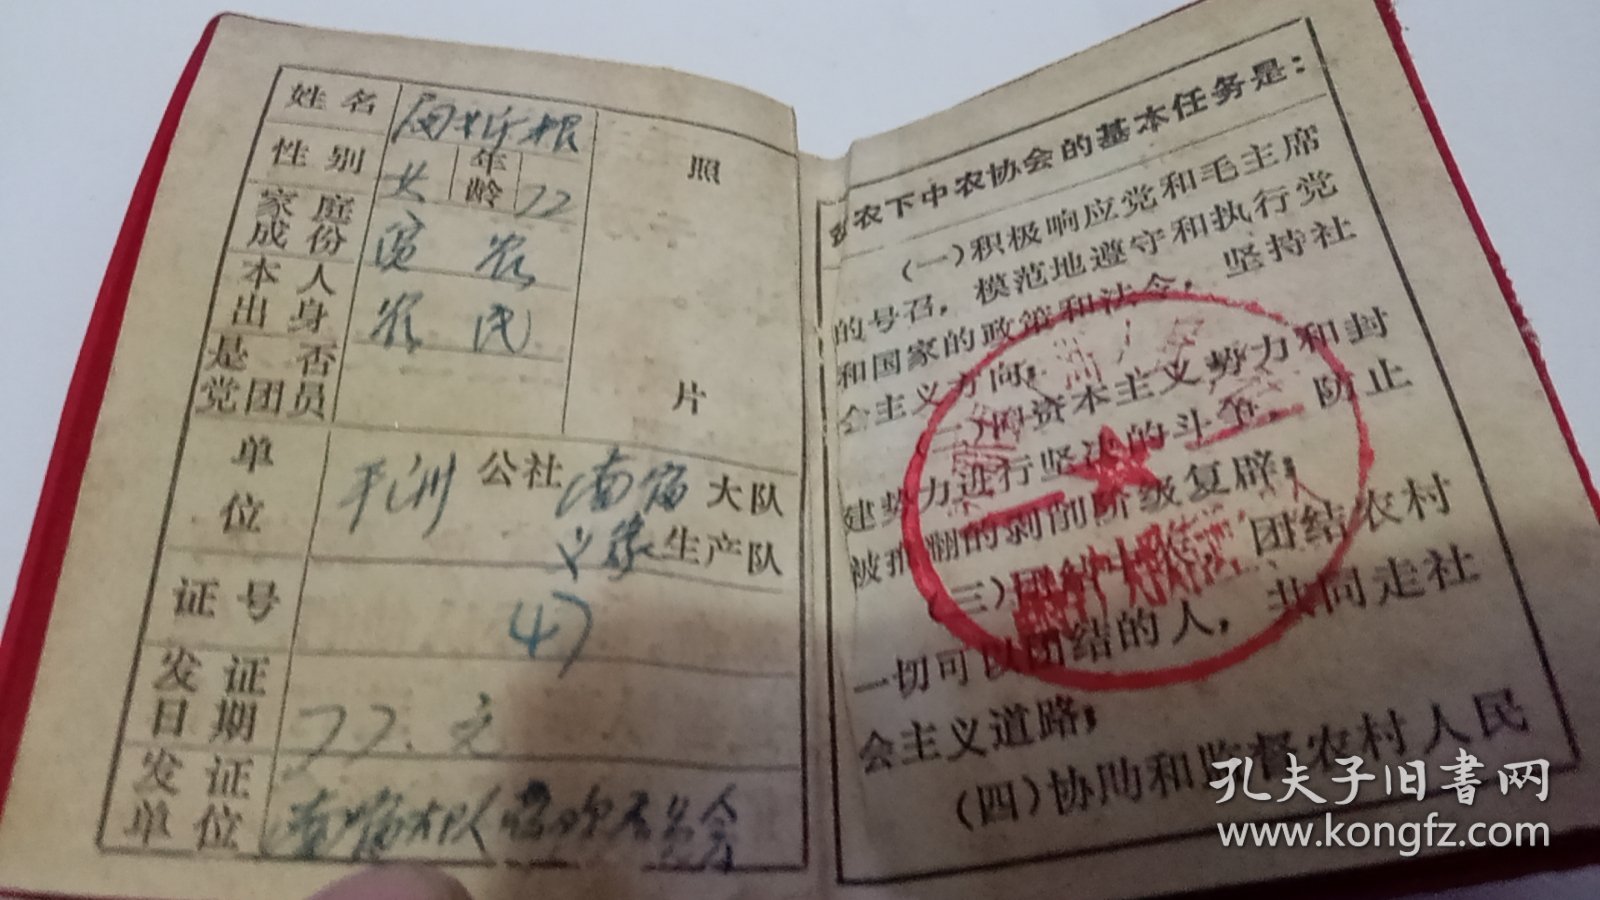 姓名
性别 女 年龄 72
家庭成份 贫农
本人出身 农民
是否党团员
照
片
单位 平洲 公社 大队
生产队
证号 47
发证日期 77.元
发证单位
农下中农协会的基本任务是:
(一)积极响应党和毛主席
的号召,模范地遵守和执行党
和国家的政策和法令,坚持社
会主义方向;
(二)向资本主义势力和封
建势力进行坚决的斗争,防止
被推翻的剥削阶级复辟;
(三)团结中农,团结农村
一切可以团结的人,共同走社
会主义道路;
(四)协助和监督农村人民
孔夫子旧書网
www.kongfz.com